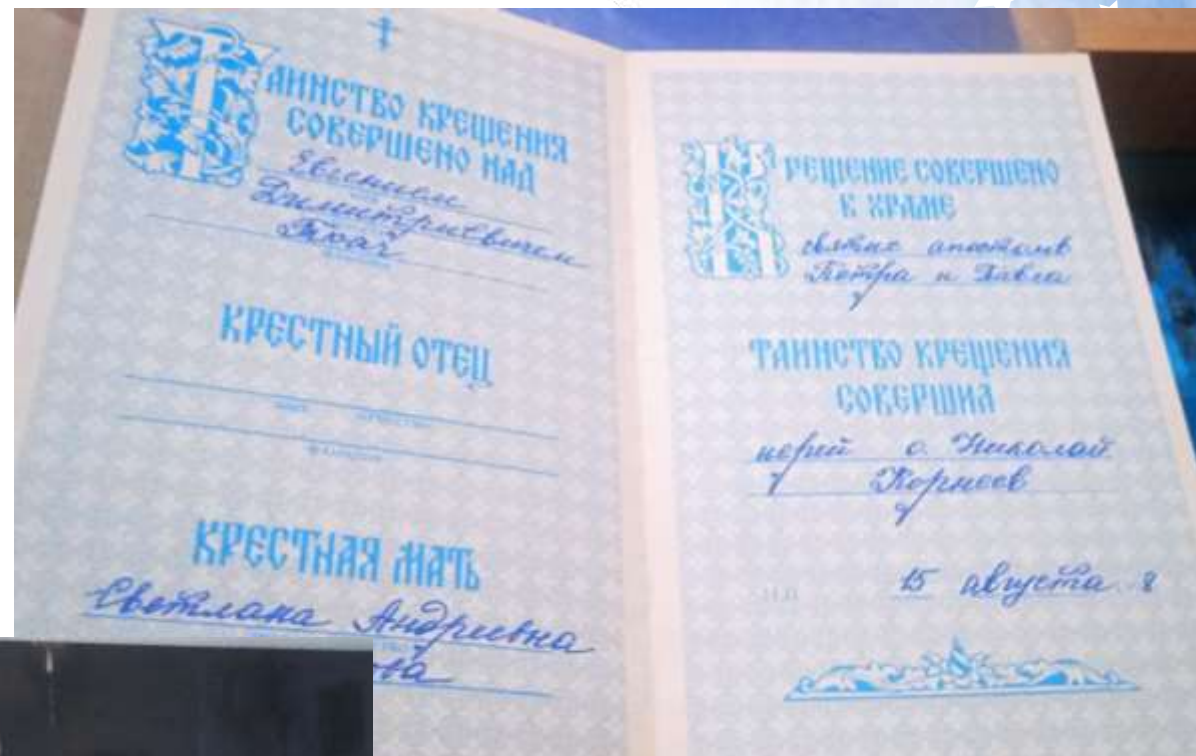 ТАИНСТВО КРЕЩЕНИЯ
СОВЕРШЕНО НАД
Евгением
Димитриевичем
КРЕСТНЫЙ ОТЕЦ
КРЕСТНАЯ МАТЬ
Светлана Андреевна
КРЕЩЕНИЕ СОВЕРШЕНО
В ХРАМЕ
святых апостолв
Петра и Павла
ТАИНСТВО КРЕЩЕНИЯ
СОВЕРШИЛ
иерей о. Николай
Корнеев
15 августа